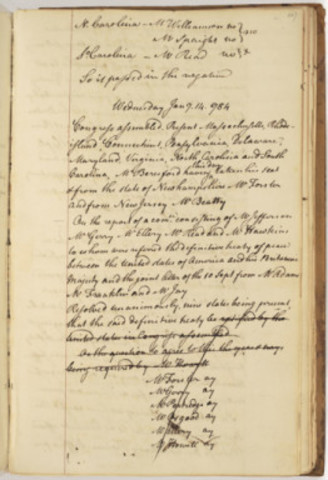 N. Carolina - Mr Williamson no } no
Mr Spaight no }
So Carolina - Mr Read no }
So it passed in the negative
Wednesday Jany. 14. 1784
Congress assembled, Present Massachusetts, Rhode
island, Connecticut, Pensylvania, Delaware,
Maryland, Virginia, North Carolina and South
Carolina, Mr Beresford having this day taken his seat
& from the state of Newhampshire Mr Forster
And from New Jersey Mr Beatty
On the report of a comee. consisting of Mr Jefferson
Mr Gerry Mr Ellery Mr Read and Mr Hawkins
to whom was referred the definitive treaty of peace
between the United States of America and his Britannic
Majesty and the joint letter of the 10 Sept from Mr Adams
Mr Franklin and Mr Jay
Resolved unanimously, nine states being present,
that the said definitive treaty be ratified by the
united states in Congress assembled
On the question to agree to this the yeas & nays
being required by Mr
Mr Forster ay
Mr Gerry ay
Mr Partridge ay
Mr Osgood ay
Mr Ellery ay
Mr Howell ay